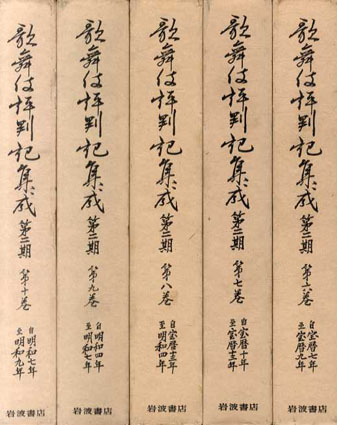 歌舞伎評判記集成 第二期 第六巻
自 宝暦七年
至 宝暦九年
岩波書店
歌舞伎評判記集成 第二期 第七巻
自 宝暦十年
至 宝暦十三年
岩波書店
歌舞伎評判記集成 第二期 第八巻
自 宝暦十三年
至 明和四年
岩波書店
歌舞伎評判記集成 第二期 第九巻
自 明和四年
至 明和七年
岩波書店
歌舞伎評判記集成 第二期 第十巻
自 明和七年
至 明和九年
岩波書店